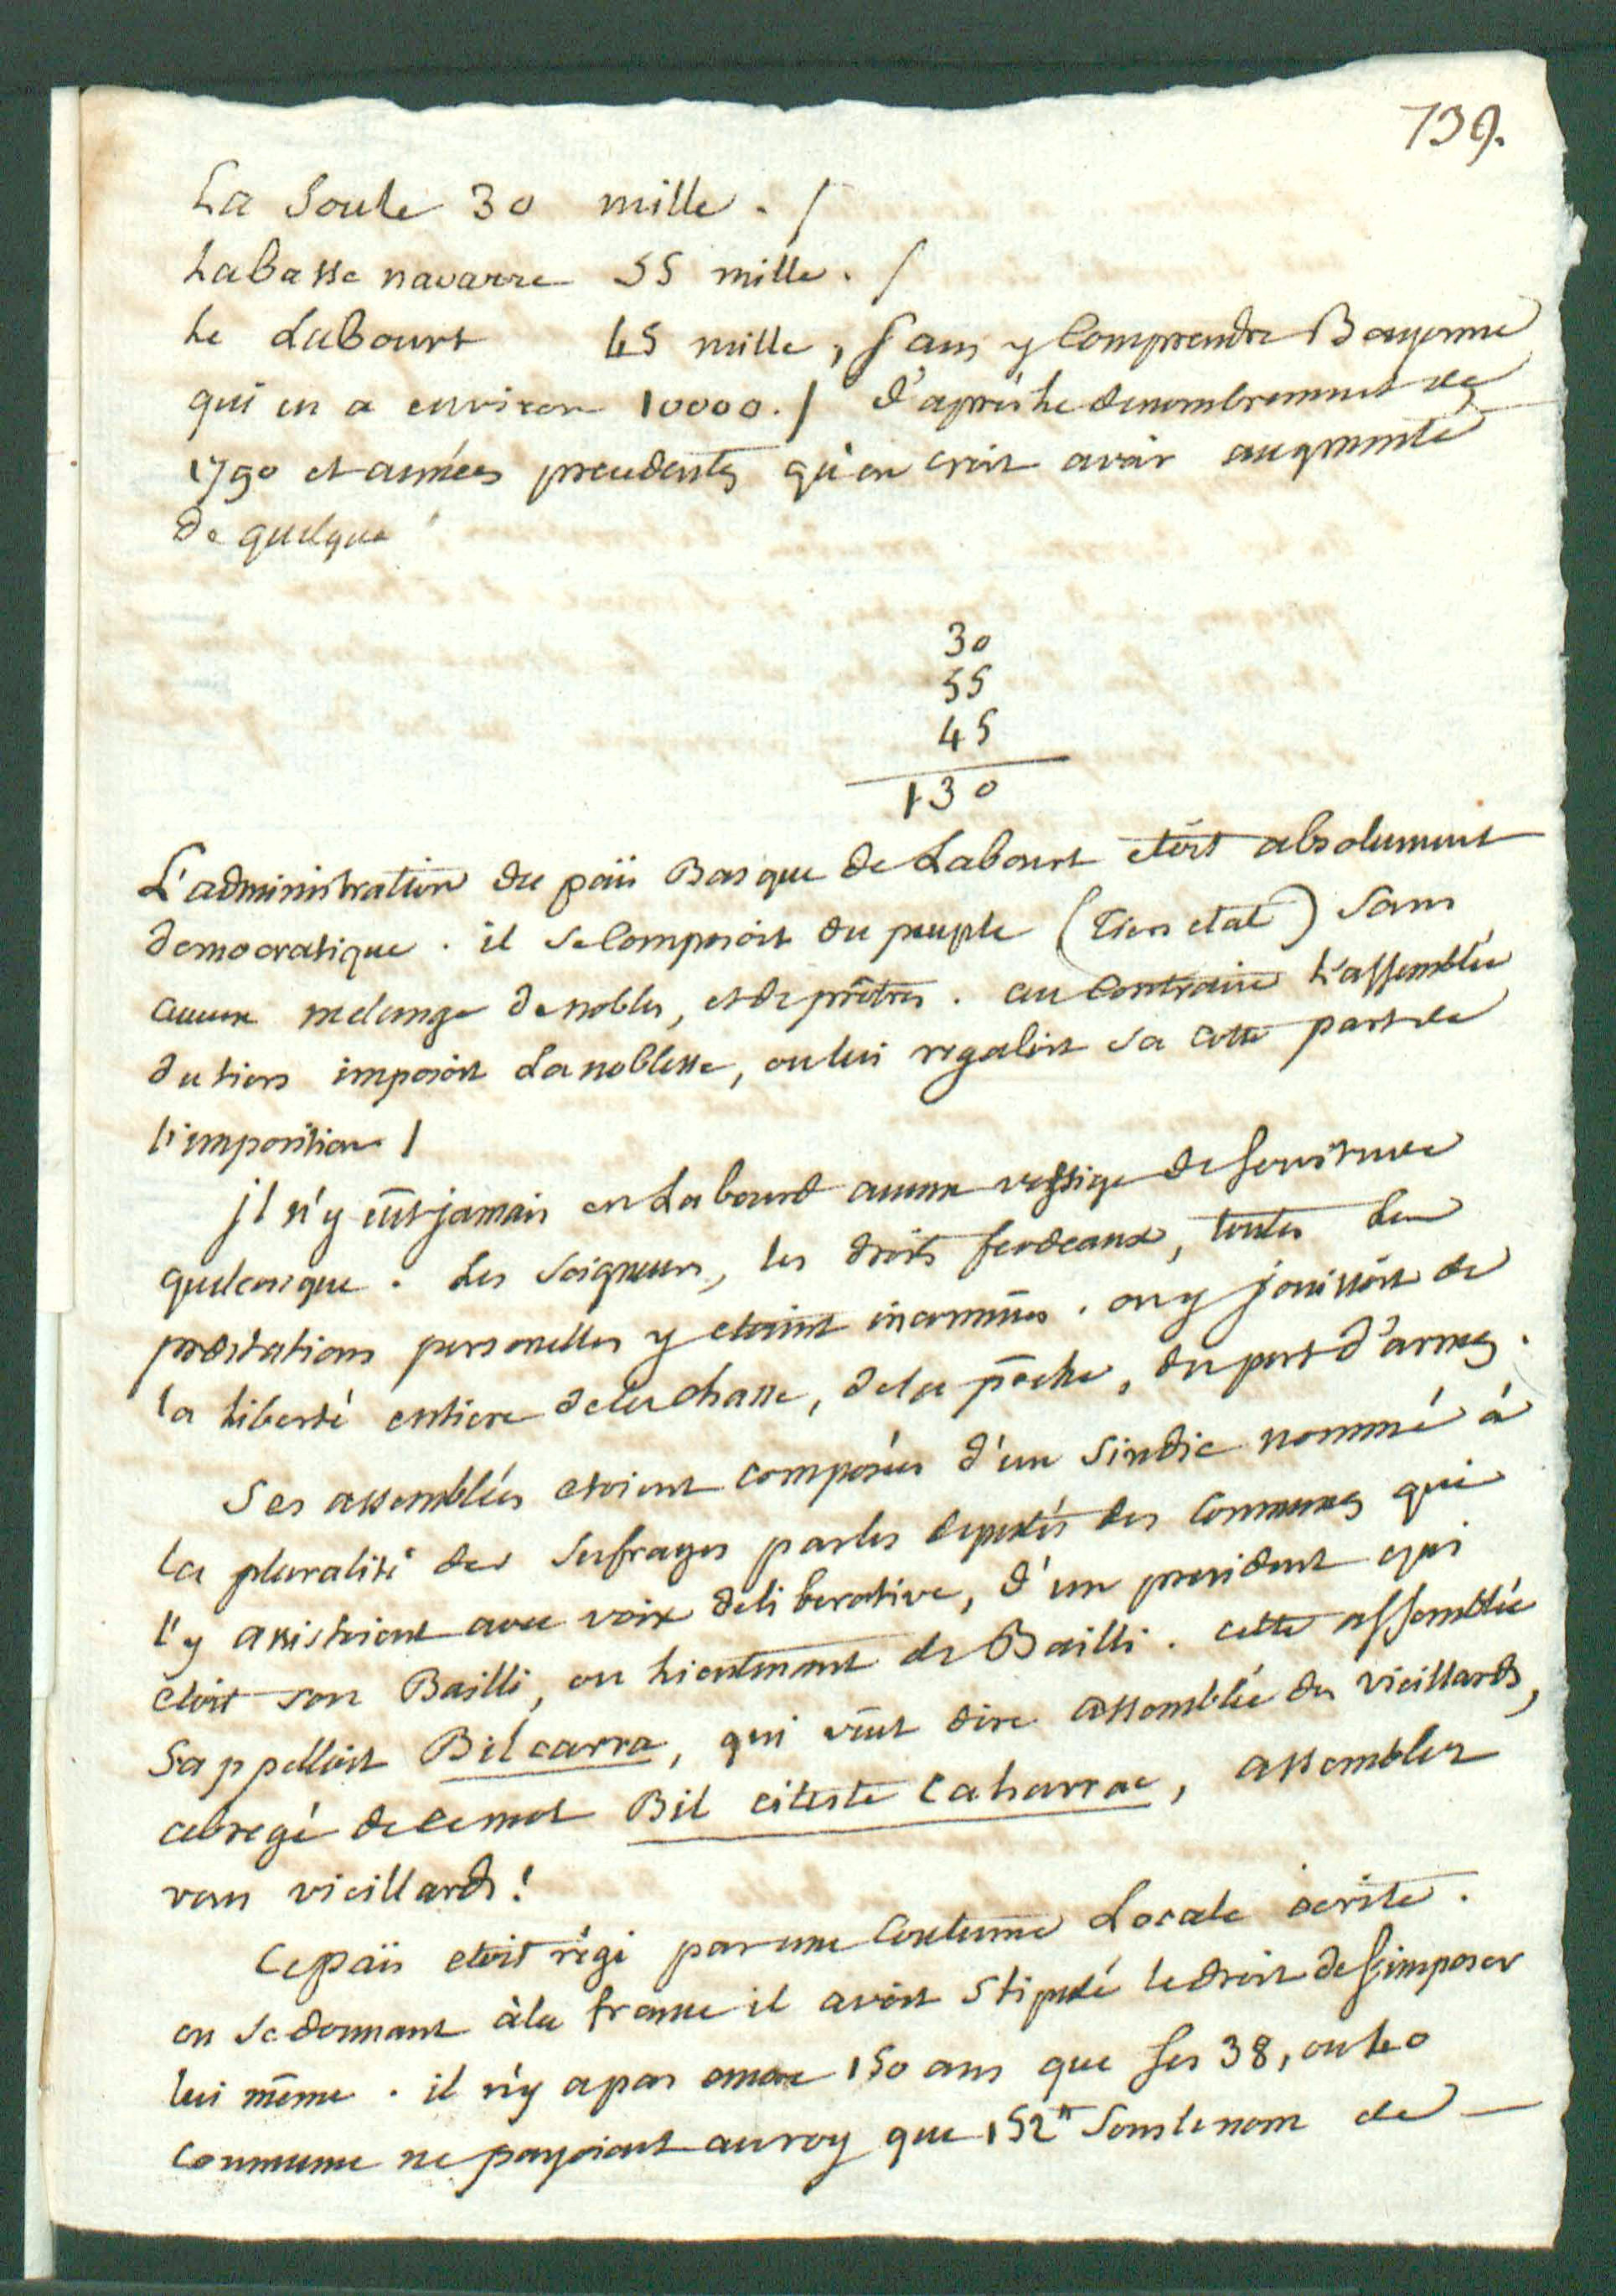 739.
La Soule 30 mille . /
La Basse navarre 55 mille . /
Le Labourt 45 mille, sans y comprendre Bayonne
qui en a environ 10000. / d'après le denombrement de
1790 et années precedentes qu'on croit avoir augmenté
de quelque
30
55
45
130
L'administration du païs Basque de Labourt etoit absolument
democratique . il se composoit du peuple (Tiers etat) sans
aucun melange de nobles, et de prêtres . au contraire L'assemblée
du tiers imposoit La noblesse, ou lui regaloit sa cotte part de
l'imposition /
jl n'y eût jamais en Labourd aucun vestige de servitude
quelconque . Les seigneurs, les droits feodeaux, toutes Les
prestations personelles y etoient inconnües . on y jouissoit de
la liberté entiere de la chasse, de la pêche, du port d'armes .
Ses assemblées etoient composées d'un sindic nommé à
la pluralité des sufrages par les deputés des communes qui
l'y assistoient avec voix deliberative, d'un president qui
etoit son Bailli, ou Lieutenant de Bailli . cette assemblée
s'appelloit Bilcarra, qui veut dire assemblée des vieillards,
abregé de ce mot Bil citeste Caharrac, assembler
vous vieillards !
Ce païs etoit régi par une Coutume Locale écrite .
en se donnant à la france il avoit stipulé le droit de s'imposer
lui même . il n'y a pas encore 150 ans que ses 38, ou 40
commune ne payoient au roy que 152# sous le nom de